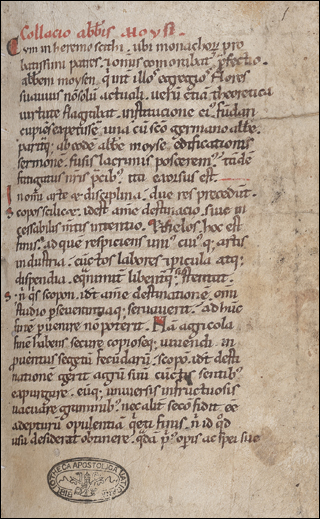 Collacio abbis Moysi.
Cum in heremo scithi. ubi monachorꝫ pro
batissimi patres. & omnis comorabat᷑. ꝑfectio
abbem moysen. q̇ int illos egregios flores
suavius nō solū actuali. verū etiā theoretica
virtute flagrabat. institucione eiꝰ fundari
cupiēs expetissem. una cū sc̄o germano abbe.
pariterq; ab eodē abbe moyse. edificationis
sermone. fusis lacrimis poscerem᷒. tādē
fatigatus nr̄is p̄cib᷒. ita exorsus est.
& disciplina. due res precedūt.
Scopos scilicet. idest anime destinacio. sive in
cessabilis mētis intentio. & thelos hoc est
finis. ad que respiciens uni᷒ cui᷒q; artis
industria. cūctos labores & picula atq;
dispendia. equanimit libentq; sustentat.
scopon. idē anime destinationē. omi
studio pseverantiaq; servaverit. ad hūc
finē pvenire nō poterit. Nā agricola
finē habens secure copioseq; vivendi. in
pventus segetū fecūdarū. scopō. idē desti
nationē gerit agrū suū cūctis sentib᷒
expurgare. eūq; universis infructuosis
vacuare graminib᷒. nec aliter se cōfidit
adepturū opulentiā q̇eti finis. nī id qd
usu desiderat obtinere. q̇dā p᷒ opis ac spei sue